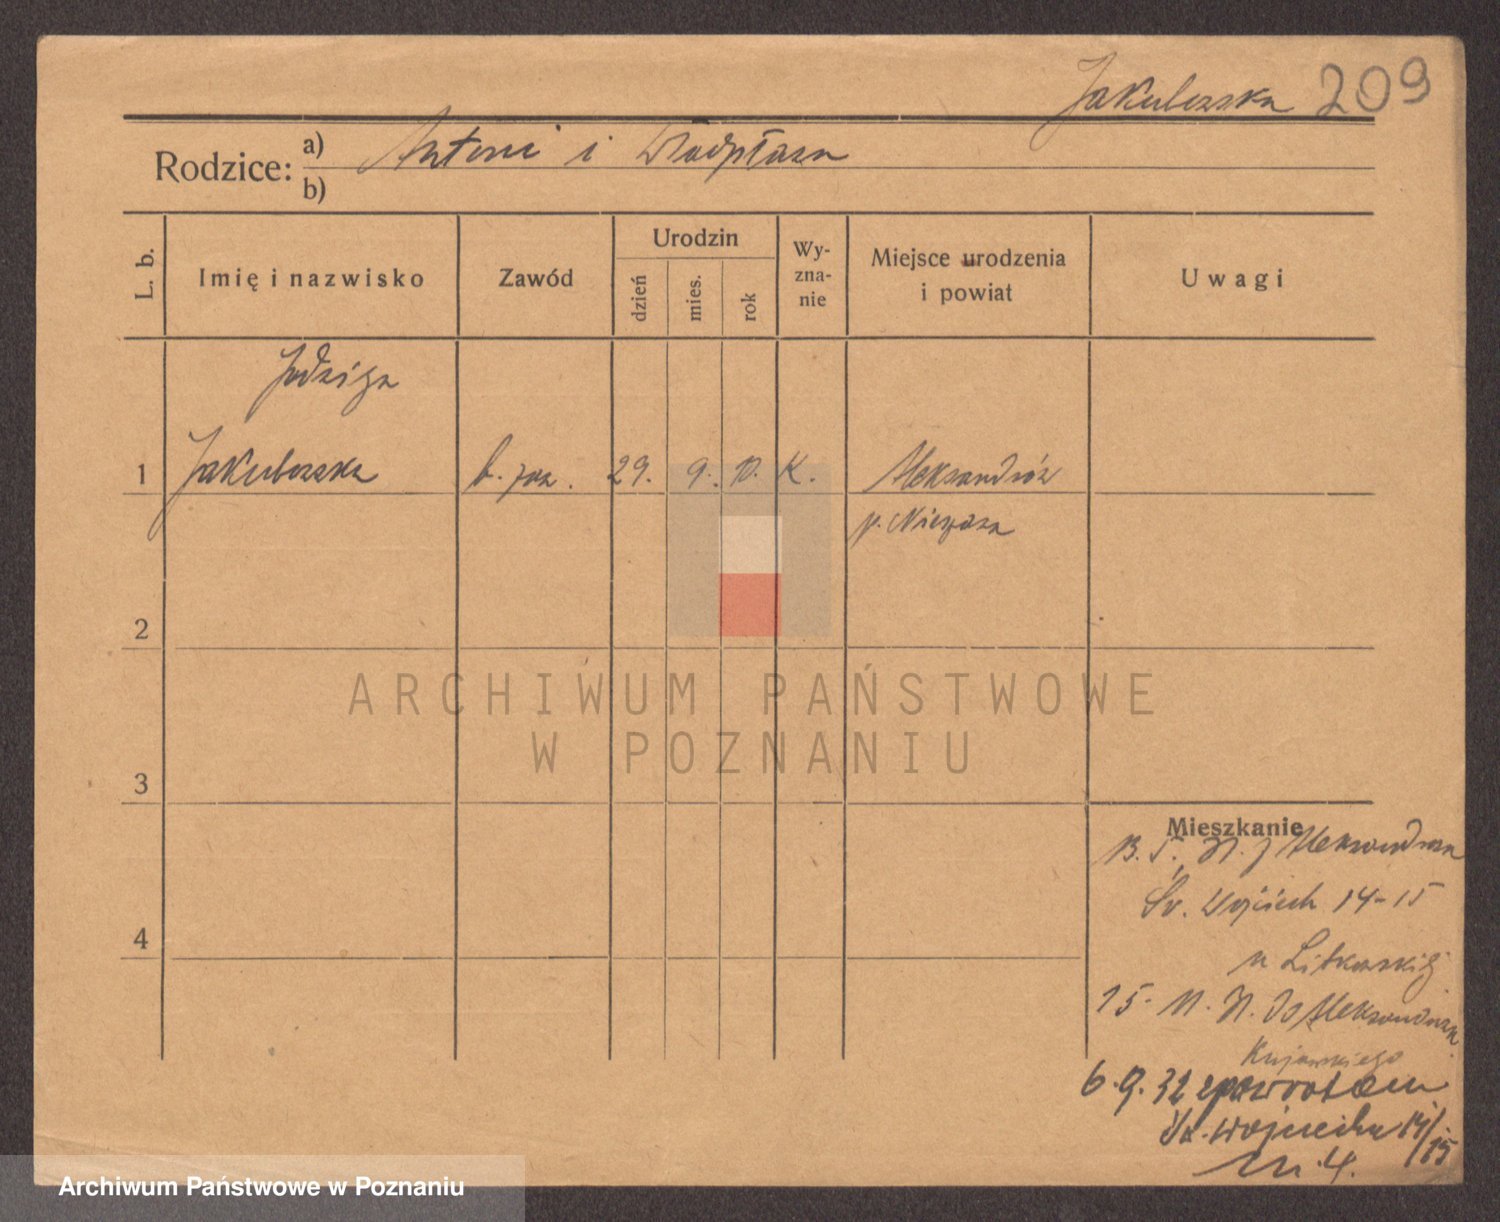 Jakubowska 209
Rodzice: a) Antoni i Władysława
b)
L. b.
Imię i nazwisko
Zawód
Urodzin
dzień
mies.
rok
Wy-
zna-
nie
Miejsce urodzenia
i powiat
Uwagi
Jadwiga
1 Jakubowska 29. 9. 10. K. Aleksandrów
p. Nieszawa
2
3
4
Mieszkanie
Aleksandrowa
Św. Wojciech 14-15
u
15 Aleksandrowa
Kujawskiego
6.9.32 zpowrotem
Św. Wojciecha 14/15
m. 4.
ARCHIWUM PAŃSTWOWE
W POZNANIU
Archiwum Państwowe w Poznaniu